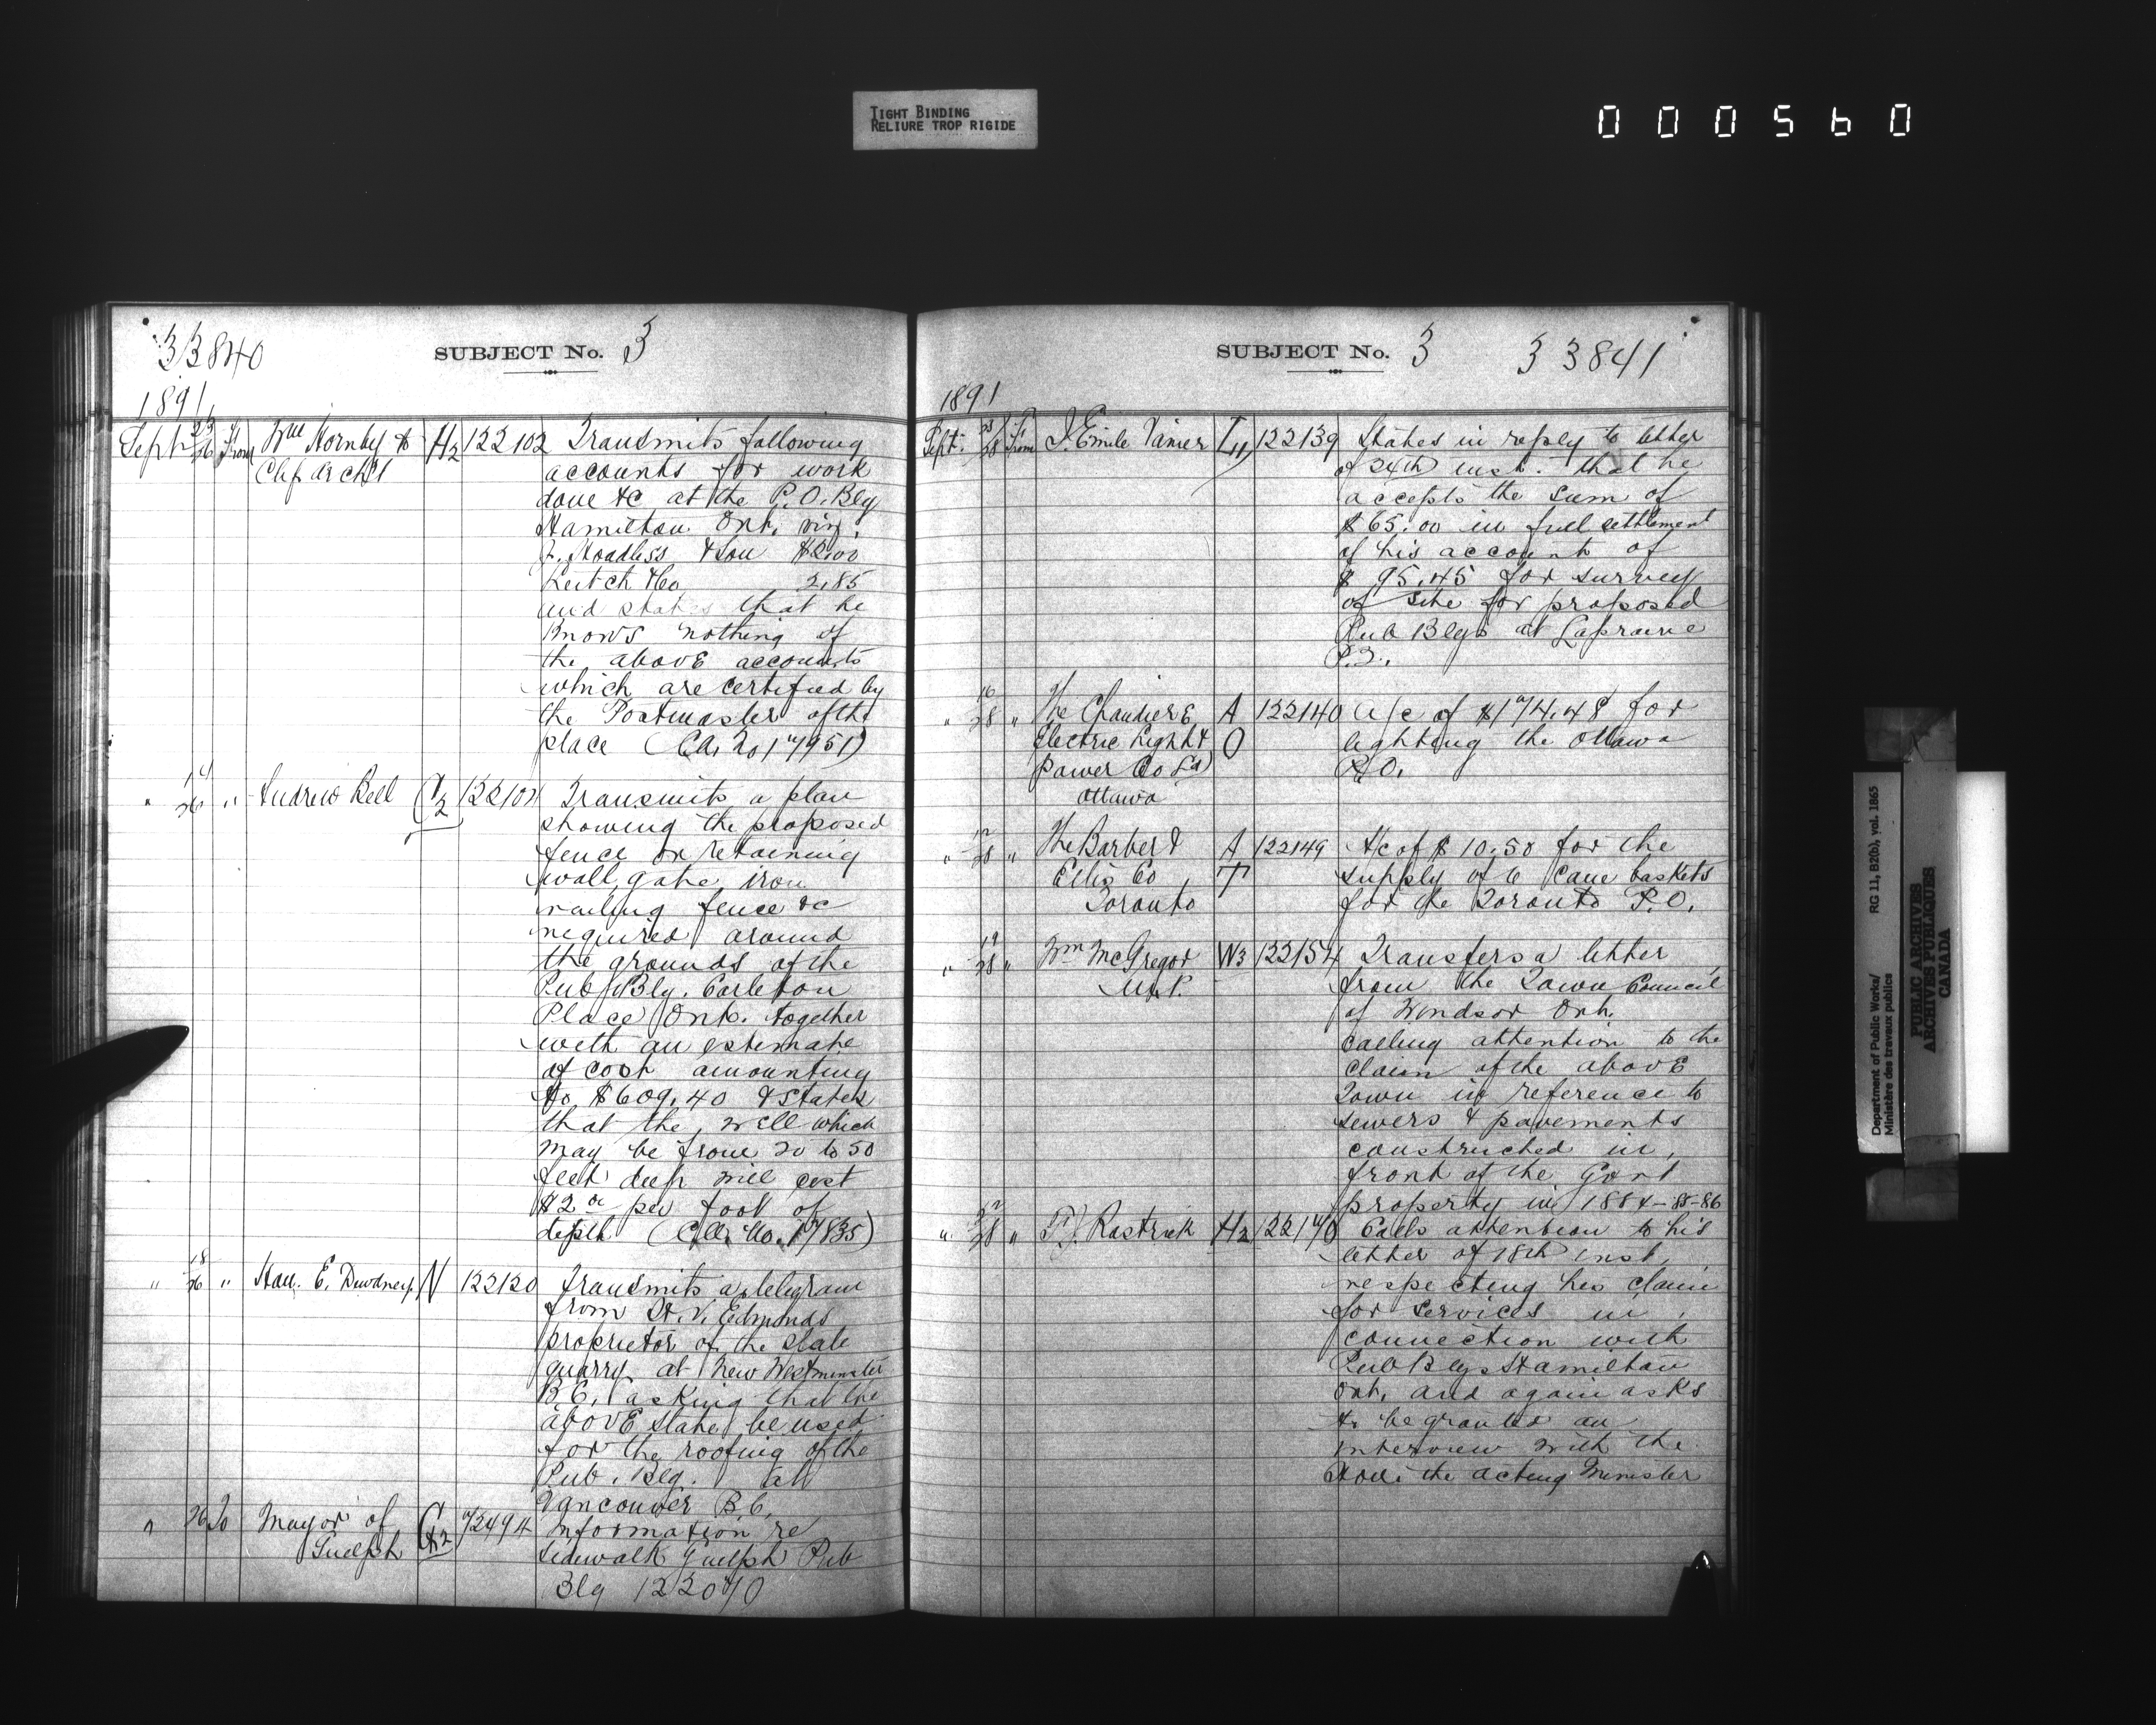 TIGHT BINDING
RELIURE TROP RIGIDE
000560
33840
SUBJECT No. 3
1891
Sept 23/26 From Wm Hornby to H2 122102 Transmits following
Chf archt accounts for work
done &c at the P.O. Blg
Hamilton Ont. viz.
J. Hoodless & Son $2.00
Leitch & Co 2.85
and states that he
knows nothing of
the above accounts
which are certified by
the Postmaster of the
place
" 26 " Andrew Bell C2 Transmits a plan
showing the proposed
fence or retaining
wall, gate, iron
railing fence &c
required around
the grounds of the
Pub Blg. Carleton
Place Ont. together
with an estimate
of cost amounting
to $609.40 & states
that the well which
may be from 20 to 50
feet deep will cost
$2 per foot of
depth
" 18/26 " Hon. E. Dewdney N 122120 Transmits a telegram
from H. V. Edmonds
proprietor of the slate
quarry at New Westminster
B.C. asking that the
above slate be used
for the roofing of the
Pub. Blg. at
Vancouver B.C.
" 26 To Mayor of G2 Information re
Guelph sidewalk Guelph Pub
Blg 122070
SUBJECT No. 3 33841
1891
Sept. 25/28 From J. Emile Vanier L4 122139 States in reply to letter
of 24th inst. that he
accepts the sum of
$65.00 in full settlement
of his account of
$95.45 for survey
of site for proposed
Pub Blgs at Laprairie
P.Q.
" 16/28 " The Chaudiere A 122140 a/c of $174.48 for
Electric Light & O lighting the Ottawa
Power Co Ld P.O.
Ottawa
" 12/28 " The Barber & A 122149 A/c of $10.50 for the
Ellis Co T supply of 6 Cane baskets
Toronto for the Toronto P.O.
" 19/28 " Wm McGregor W3 122154 Transfers a letter
M.P. from the Town Council
of Windsor Ont.
calling attention to the
claim of the above
Town in reference to
sewers & pavements
constructed in
front of the Govt
property in 1884-85-86
" 22/28 " F. J. Rastrick H2 122170 Calls attention to his
letter of 18th inst.
respecting his claim
for services in
connection with
Pub Blgs Hamilton
Ont. and again asks
to be granted an
interview with the
Hon. the acting Minister
Department of Public Works/ RG 11, B2(b), vol. 1865
Ministère des travaux publics
PUBLIC ARCHIVES
ARCHIVES PUBLIQUES
CANADA